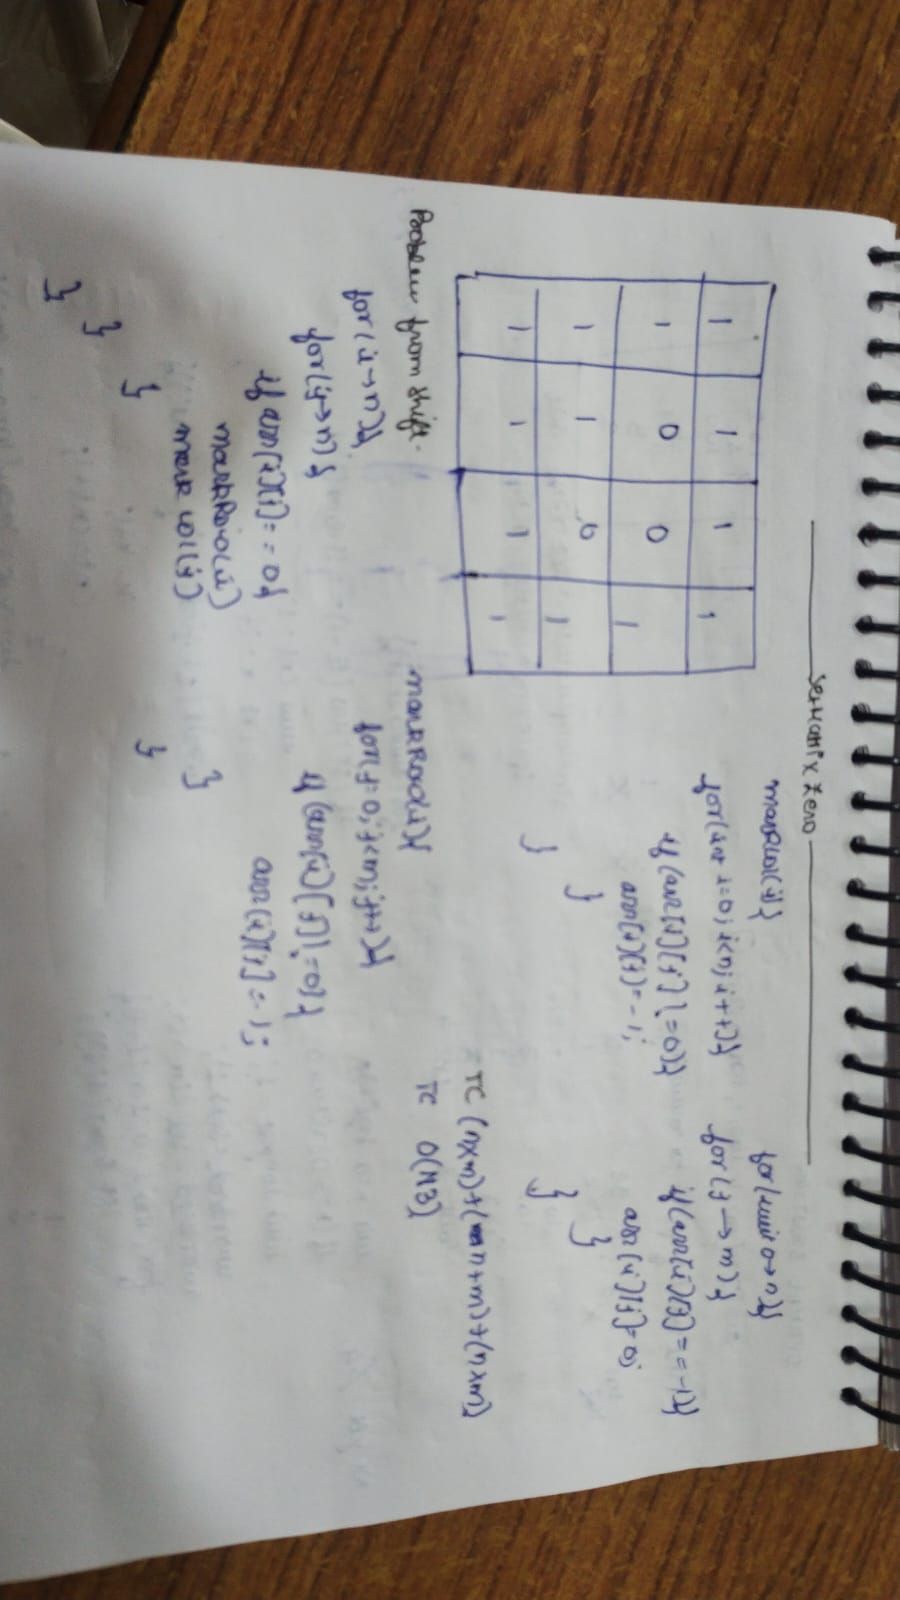 SetMatrix Zero
1 1 1 1
1 0 0 1
1 1 0 1
1 1 1 1
Problem from shift.
for(i→n){
for(j→n){
if arr[i][j]==0{
markRow(i)
mark col(j)
}
}
}
markRow(i){
for(j=0;j<m;j++){
if(arr[i][j]!=0){
arr[i][j]=-1;
}
}
markcol(j){
for(int i=0;i<n;i++){
if(arr[i][j]!=0){
arr[i][j]=-1;
}
}
0→n){
for(j→m){
if(arr[i][j]==-1){
arr[i][j]=0;
}
}
TC (n×m)+(n+m)+(n×m)
TC O(N3)